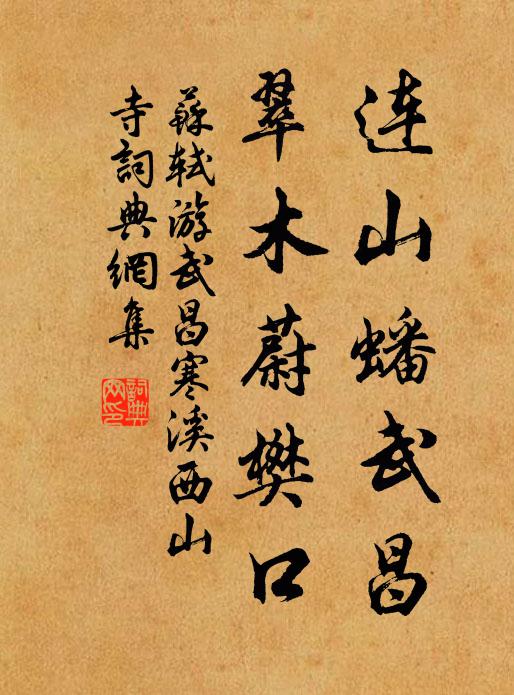 连山蟠武昌
翠木蔚樊口
蘇軾游武昌寒溪西山
寺詞典網集
詞典網印